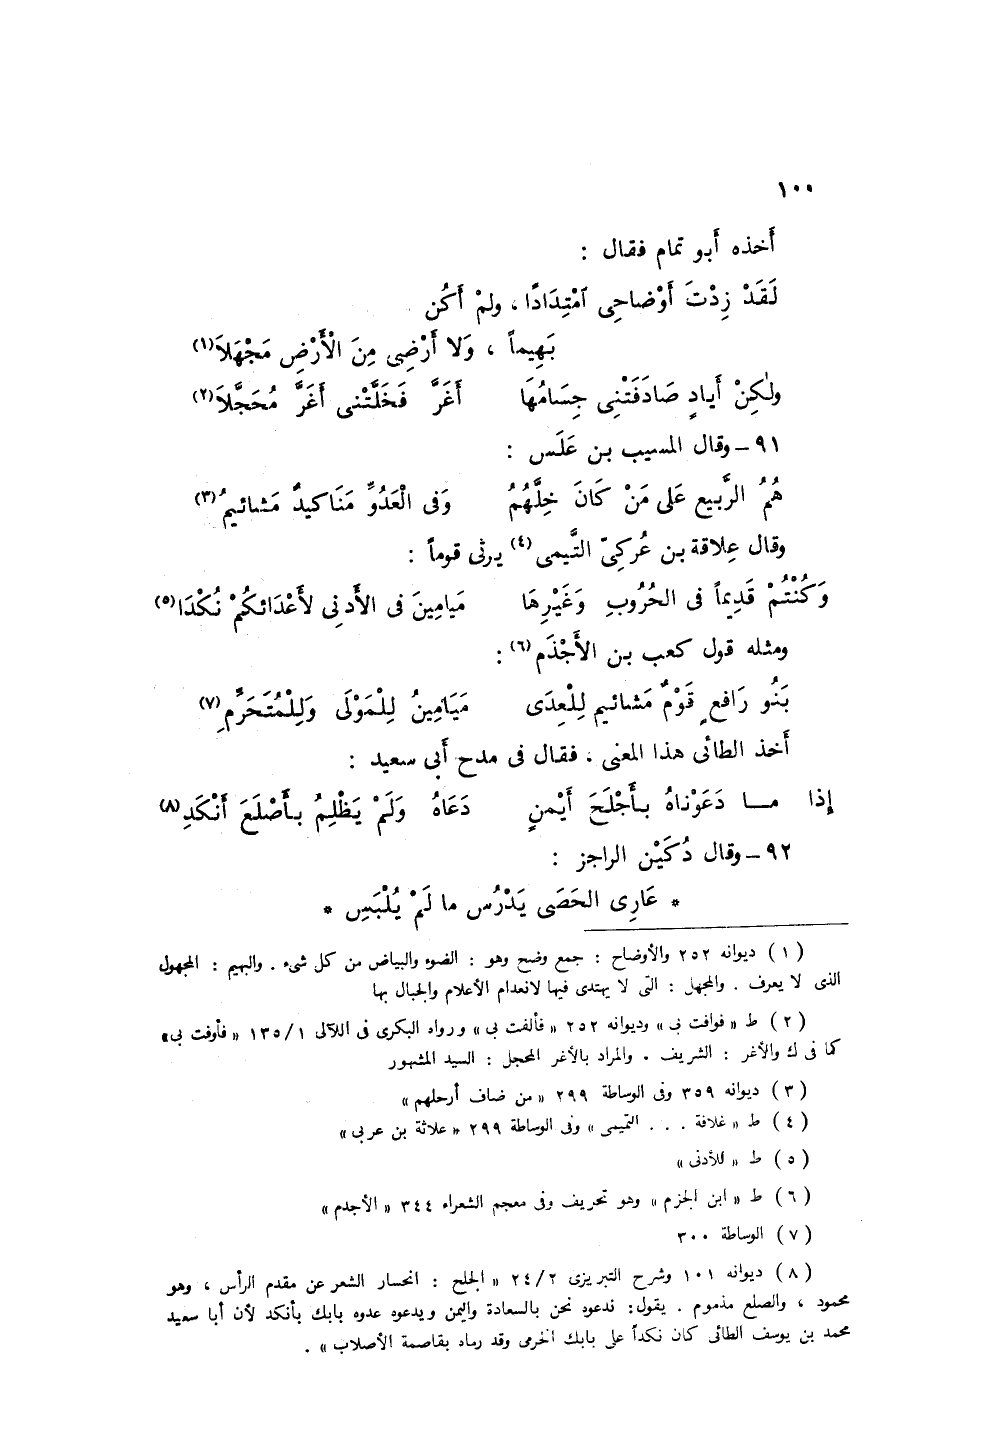 ١٠٠
أَخذه أَبو تمام فقال :
لَقَدْ زِدْتَ أَوْضاحِى ٱمْتِدَادًا ، ولمْ أَكُن
بَهِيماً ، وَلا أَرْضِى مِنَ الْأَرْضِ مَجْهَلاَ(١)
ولٰكِنْ أَيادٍ صَادَفَتْنِى جِسَامُهَا أَغَرَّ فَخَلَّتْنى أَغَرَّ مُحَجَّلاَ(٢)
٩١ – وقال المسيب بن عَلَس :
هُمُ الرَّبيع عَلى مَنْ كَانَ خِلَّهُمُ وَفى الْعَدُوِّ مَنَاكيدٌ مَشائيمُ(٣)
وقال عِلاقة بن عُركِىّ التَّيمى(٤) يرثى قوماً :
وَكُنْتُمْ قَدِيماً فى الحُرُوبِ وَغَيْرِهَا مَيامِينَ فى الأَدنِى لأَعْدَائكُمْ نُكْدَا(٥)
ومثله قول كعب بن الأَجْذَم(٦) :
بَنُو رَافعٍ قَوْمٌ مَشائيم لِلْعِدَى مَيَامِينُ لِلْمَوْلَى وَلِلْمُتَحَرِّمِ(٧)
أَخذ الطائى هذا المعنى ، فقال فى مدح أَبى سعيد :
إِذا مـــا دَعَوْناهُ بـأَجْلَحَ أَيْمنٍ دَعَاهُ وَلَمْ يَظْلِمْ بـأَصْلَعَ أَنْكَدِ(٨)
٩٢ – وقال دُكَيْن الراجز :
* عَارِى الحَصَى يَدْرُس ما لَمْ يُلْبَسِ *
( ١ ) ديوانه ٢٥٢ والأوضاح : جمع وضح وهو : الضوء والبياض من كل شىء . والبهيم : المجهول
الذى لا يعرف . والمجهل : التى لا يهتدى فيها لانعدام الأعلام والجبال بها
( ٢ ) ط « فوافت بى » وديوانه ٢٥٢ « فألفت بى » ورواه البكرى فى اللآلى ١٣٥/١ « فأوفت بى »
كما فى ك والأغر : الشريف . والمراد بالأغر المحجل : السيد المشهور
( ٣ ) ديوانه ٣٥٩ وفى الوساطة ٢٩٩ « من ضاف أرحلهم »
( ٤ ) ط « غلافة . . . التميمى » وفى الوساطة ٢٩٩ « علاثة بن عربى »
( ٥ ) ط « للأدنى »
( ٦ ) ط « ابن الجزم » وهو تحريف وفى معجم الشعراء ٣٤٤ « الأجدم »
( ٧ ) الوساطة ٣٠٠
( ٨ ) ديوانه ١٠١ وشرح التبريزى ٢٤/٢ « الجلح : انحسار الشعر عن مقدم الرأس ، وهو
محمود ، والصلع مذموم . يقول : ندعوه نحن بالسعادة واليمن ويدعوه عدوه بابك بأنكد لأن أبا سعيد
محمد بن يوسف الطائى كان نكداً على بابك الخرمى وقد رماه بقاصمة الأصلاب » .